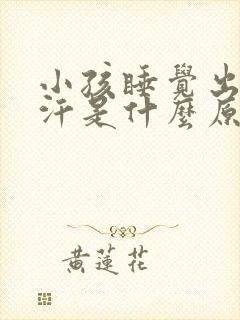 小孩睡覺出
汗是什麼原
黃蓮花